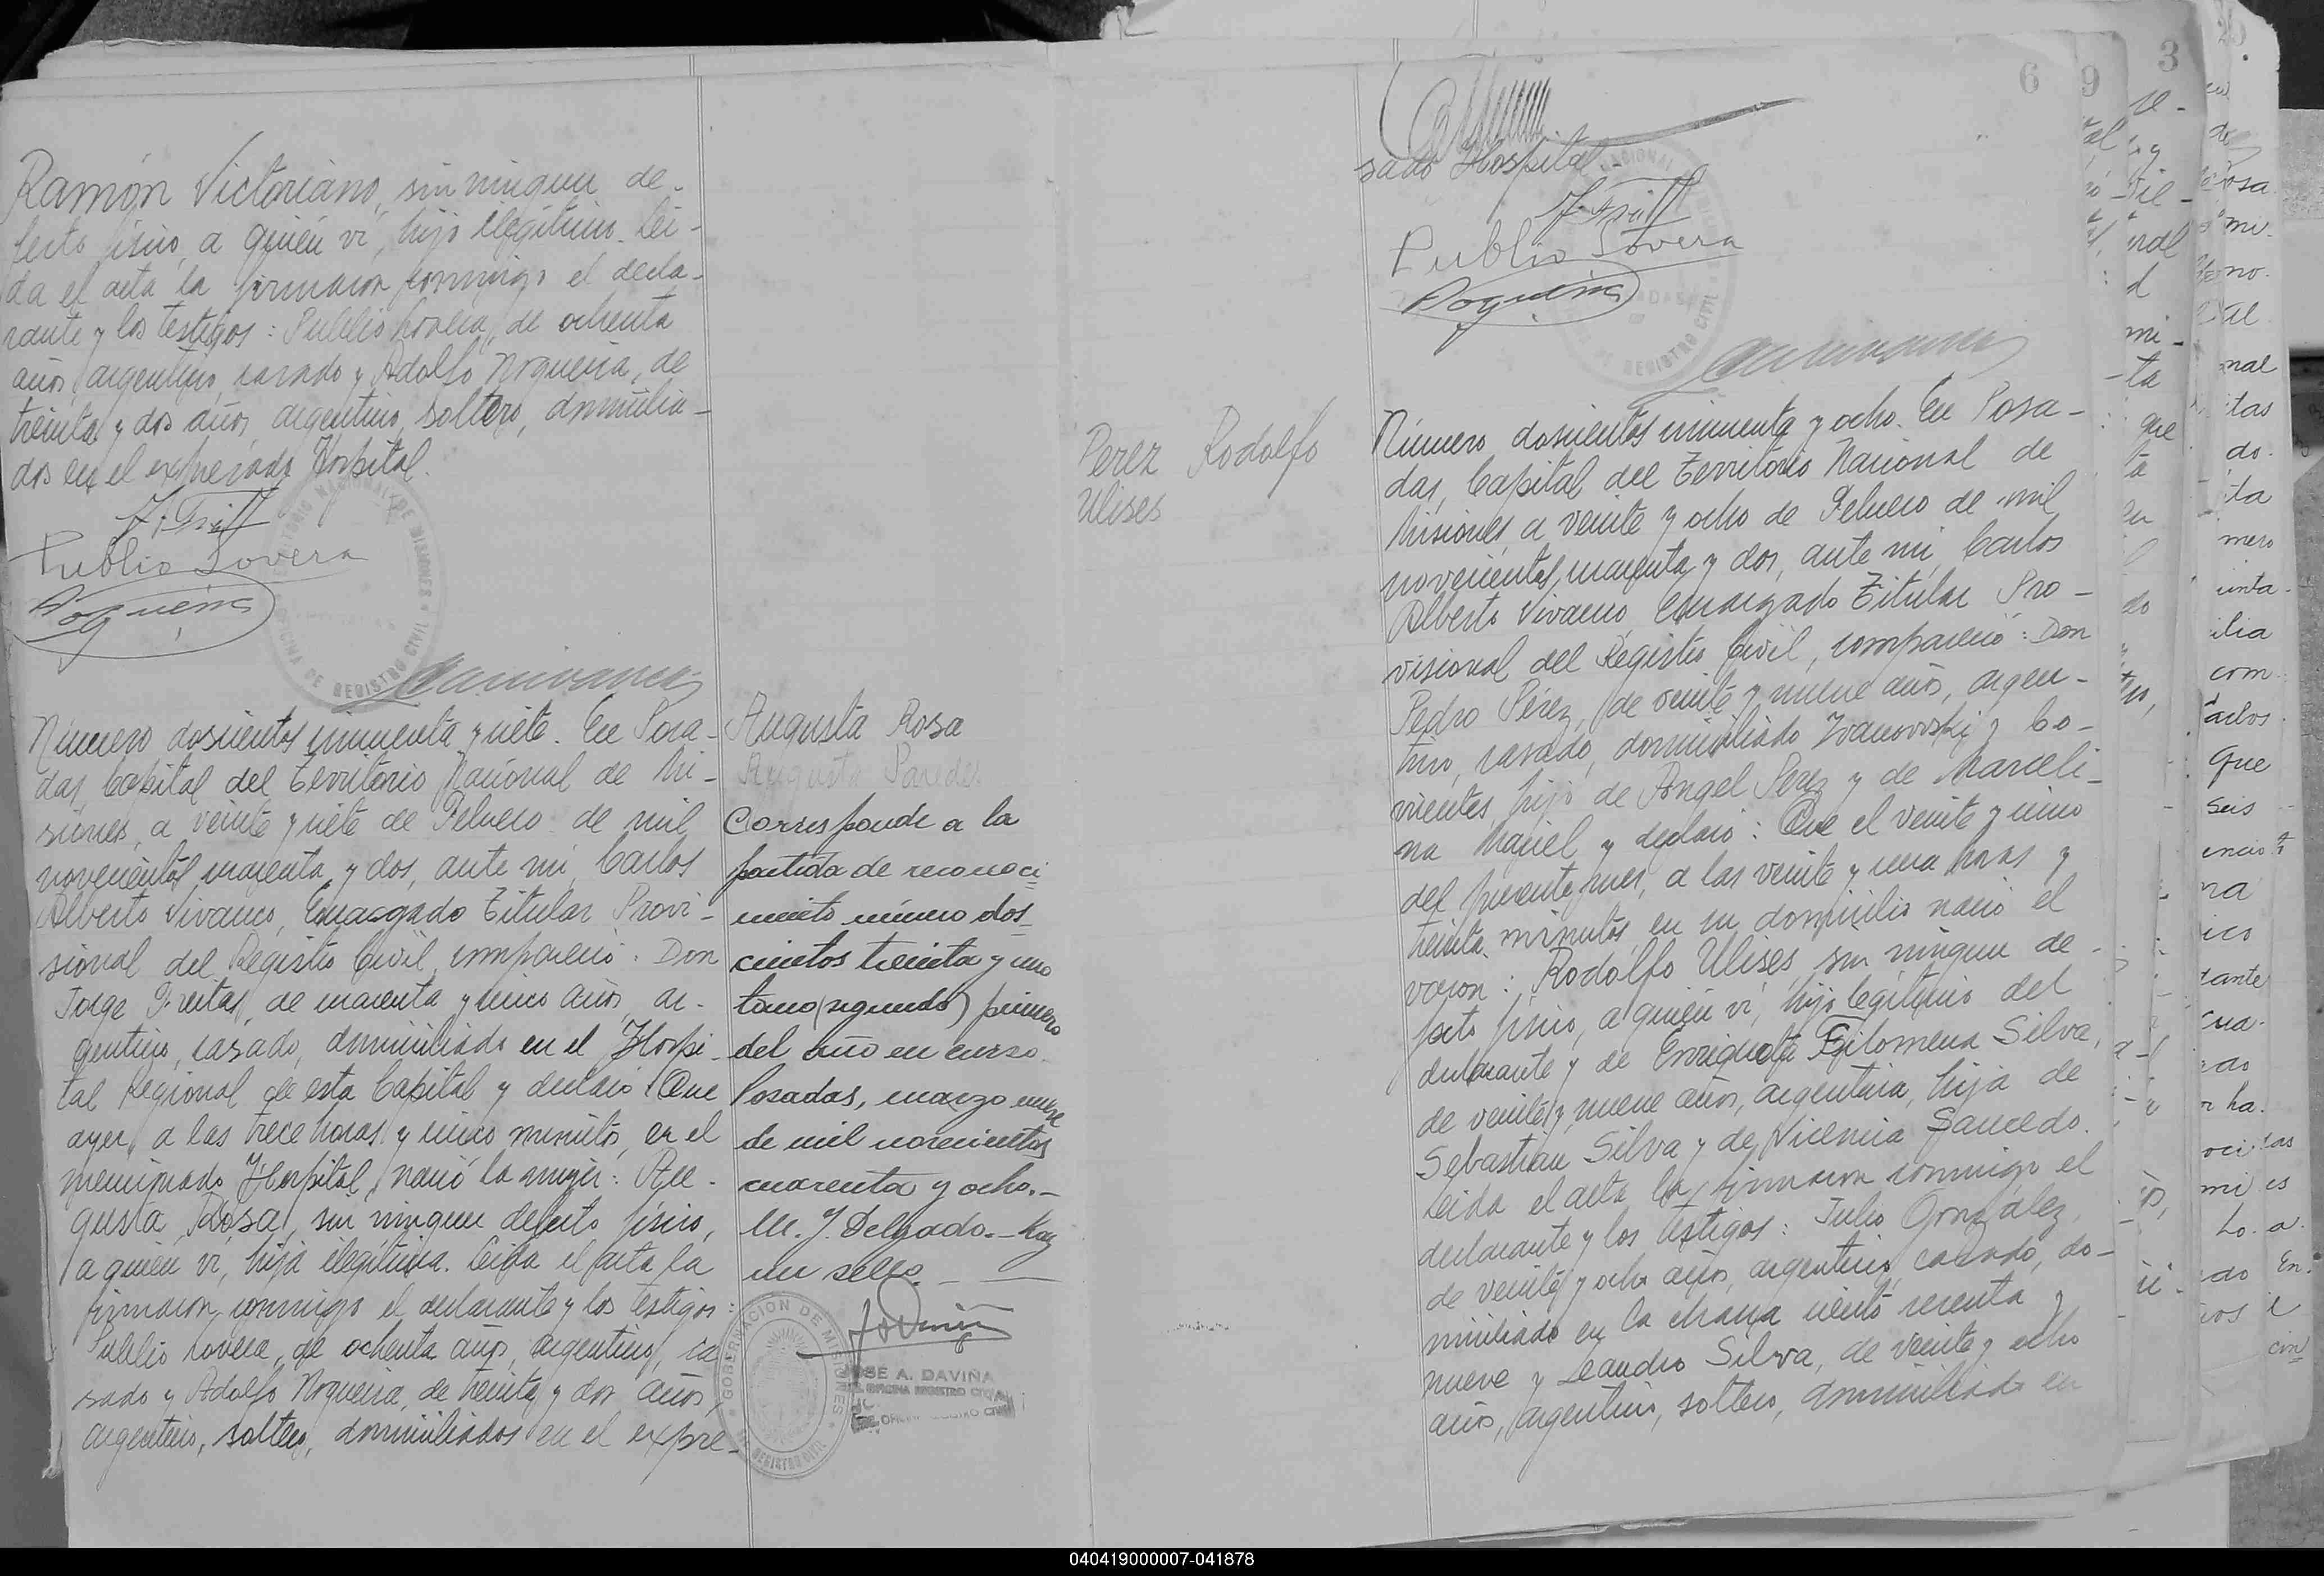 Ramón Victoriano, sin ningun de-
fecto físico, a quién ví, hijo ilegítimo. Lei-
da el acta la firmaron conmigo el decla-
rante y los testigos: Publio Lovera, de ochenta
años, argentino, casado y Adolfo Nogueira, de
treinta y dos años, argentino, soltero, domicilia-
dos en el expresado Hospital.
Publio Lovera
Nogueira
Número doscientos cincuenta y siete. En Posa-
das, Capital del Territorio Nacional de Mi-
siones, a veinte y siete de Febrero de mil
novecientos cuarenta y dos, ante mí, Carlos
Alberto Vivanco, Encargado Titular Provi-
sional del Registro Civil, compareció: Don
Jorge Freitas, de cuarenta y cinco años, ar-
gentino, casado, domiciliado en el Hospi-
tal Regional de esta Capital y declaró: Que
ayer, a las trece horas y cinco minutos, en el
mencionado Hospital, nació la mujer: Au-
gusta Rosa, sin ningun defecto físico,
a quién ví, hija ilegítima. Leida el acta la
firmaron conmigo el declarante y los testigos:
Publio Lovera, de ochenta años, argentino, ca
sado y Adolfo Nogueira, de treinta y dos años,
argentino, soltero, domiciliados en el expre-
Augusta Rosa
Augusta Paredes
Corresponde a la
partida de reconoci
miento número dos-
cientos treinta y uno
tomo (segundo) primero
del año en curso.
Posadas, marzo nueve
de mil novecientos
cuarenta y ocho.-
M. J. Delgado.- Hay
un sello.-
GOBERNACION DE MISIONES
REGISTRO CIVIL
JOSE A. DAVIÑA
OFICINA REGISTRO CIVIL
6
sado Hospital.-
Publio Lovera
Nogueira
Perez Rodolfo
Ulises
Número doscientos cincuenta y ocho. En Posa-
das, Capital del Territorio Nacional de
Misiones, a veinte y ocho de Febrero de mil
novecientos cuarenta y dos, ante mí, Carlos
Alberto Vivanco, Encargado Titular Pro-
visional del Registro Civil, compareció: Don
Pedro Pérez, de veinte y nueve años, argen-
tino, casado, domiciliado Ivanovski y Co-
rrientes, hijo de Angel Perez y de Marceli-
na Maciel y declaró: Que el veinte y cinco
del presente mes, a las veinte y una horas y
treinta minutos, en su domicilio nació el
varon: Rodolfo Ulises, sin ningun de-
fecto físico, a quién ví, hijo legítimo del
declarante y de Enriqueta Filomena Silva,
de veinte y nueve años, argentina, hija de
Sebastián Silva y de Vicencia Saucedo.
Leida el acta la firmaron conmigo el
declarante y los testigos: Julio González,
de veinte y ocho años, argentino, casado, do-
miciliado en la chacra ciento sesenta y
nueve y Leandro Silva, de veinte y ocho
años, argentino, soltero, domiciliado en
9
3
040419000007-041878